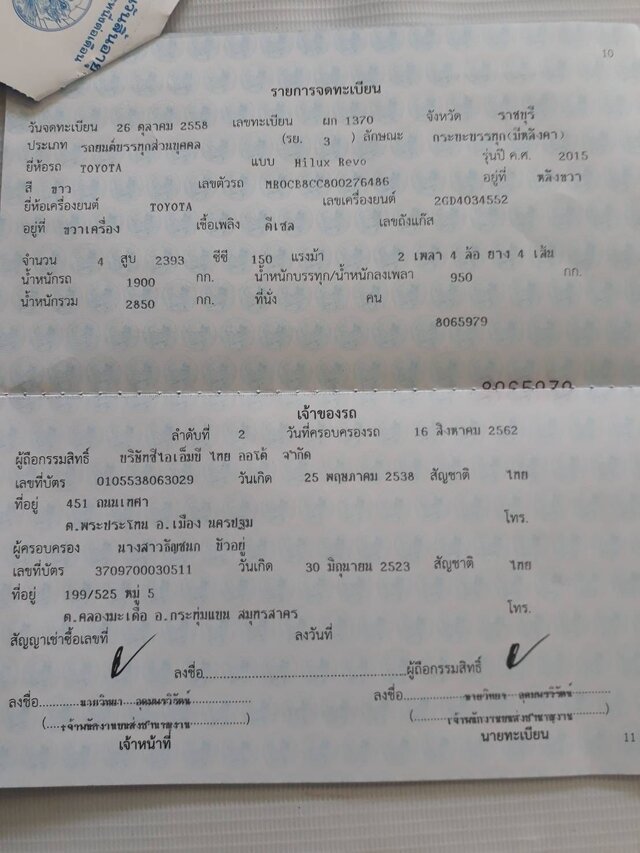 10
รายการจดทะเบียน
วันจดทะเบียน 26 ตุลาคม 2558 เลขทะเบียน ผก 1370 จังหวัด ราชบุรี
ประเภท รถยนต์บรรทุกส่วนบุคคล (รย. 3 ) ลักษณะ กระบะบรรทุก(มีหลังคา)
ยี่ห้อรถ TOYOTA แบบ Hilux Revo รุ่นปี ค.ศ. 2015
สี ขาว เลขตัวรถ MR0CB8CC800276486 อยู่ที่ หลังขวา
ยี่ห้อเครื่องยนต์ TOYOTA เลขเครื่องยนต์ 2GD4034552
อยู่ที่ ขวาเครื่อง เชื้อเพลิง ดีเซล เลขถังแก๊ส
จำนวน 4 สูบ 2393 ซีซี 150 แรงม้า 2 เพลา 4 ล้อ ยาง 4 เส้น
น้ำหนักรถ 1900 กก. น้ำหนักบรรทุก/น้ำหนักลงเพลา 950 กก.
น้ำหนักรวม 2850 กก. ที่นั่ง คน
8065979
8065979
เจ้าของรถ
ลำดับที่ 2 วันที่ครอบครองรถ 16 สิงหาคม 2562
ผู้ถือกรรมสิทธิ์ บริษัทซีไอเอ็มบี ไทย ออโต้ จำกัด
เลขที่บัตร 0105538063029 วันเกิด 25 พฤษภาคม 2538 สัญชาติ ไทย
ที่อยู่ 451 ถนนเทศา
ต.พระประโทน อ.เมือง นครปฐม โทร.
ผู้ครอบครอง นางสาวธัญชนก บัวอยู่
เลขที่บัตร 3709700030511 วันเกิด 30 มิถุนายน 2523 สัญชาติ ไทย
ที่อยู่ 199/525 หมู่ 5
ต.คลองมะเดื่อ อ.กระทุ่มแบน สมุทรสาคร โทร.
สัญญาเช่าซื้อเลขที่ ลงวันที่
ลงชื่อ ผู้ถือกรรมสิทธิ์
ลงชื่อ นายวิทยา ลงชื่อ นายวิทยา
(เจ้าพนักงานขนส่งชำนาญงาน) (เจ้าพนักงานขนส่งชำนาญงาน)
เจ้าหน้าที่ นายทะเบียน
11